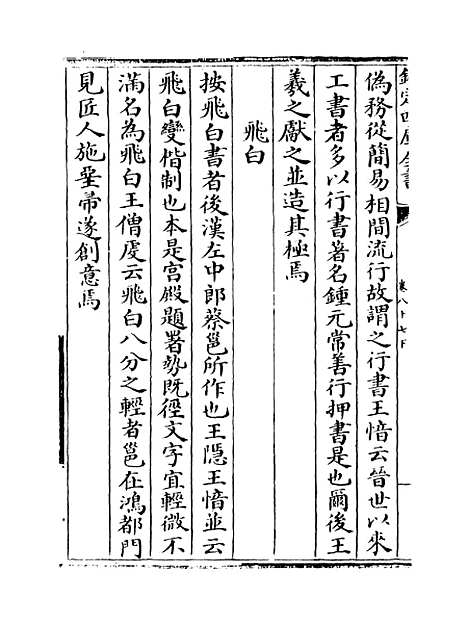 欽定四庫全書
卷八十七下
偽務從簡易相間流行故謂之行書王愔云晉世以來
工書者多以行書著名鍾元常善行押書是也爾後王
羲之獻之並造其極焉
飛白
按飛白書者後漢左中郎蔡邕所作也王隱王愔並云
飛白變楷制也本是宮殿題署勢既徑文字宜輕微不
滿名為飛白王僧虔云飛白八分之輕者邕在鴻都門
見匠人施堊帚遂創意焉